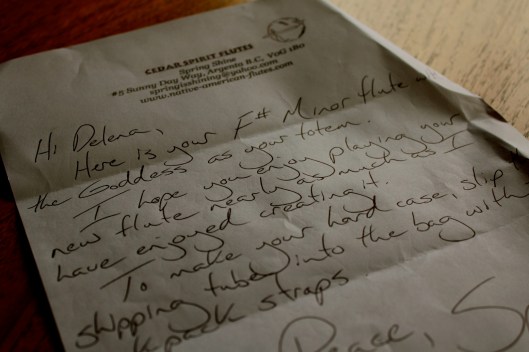 CEDAR SPIRIT FLUTES
Spring Shine
#8 Sunny Day Way, Argenta B.C., V0G 1B0
springisshining@yahoo.com
www.native-american-flutes.com
Hi Delena,
Here is your F# Minor flute
the Goddess as your totem.
I hope you enjoy playing your
new flute nearly as much as I
have enjoyed creating it.
To make your hard case, slip
shipping tube into the bag with
pack straps
Peace,